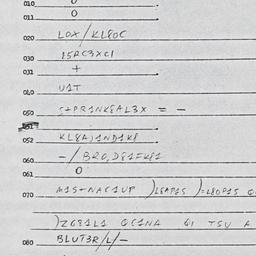 010 0
011 0
020 LOX/KL8OC
030 15RC3XC1
031 +
040 U1T
050 S+PR1NK8AL3X = -
051
052 KL8A)1ND1K8
060 -/BRO,D81=K81
061 0
070 M1S+NAC1UP )L8AP1S )=L8OP1S
)ZG81L1 OC1NA 61 TSV A
080 BLUT3R/L/-